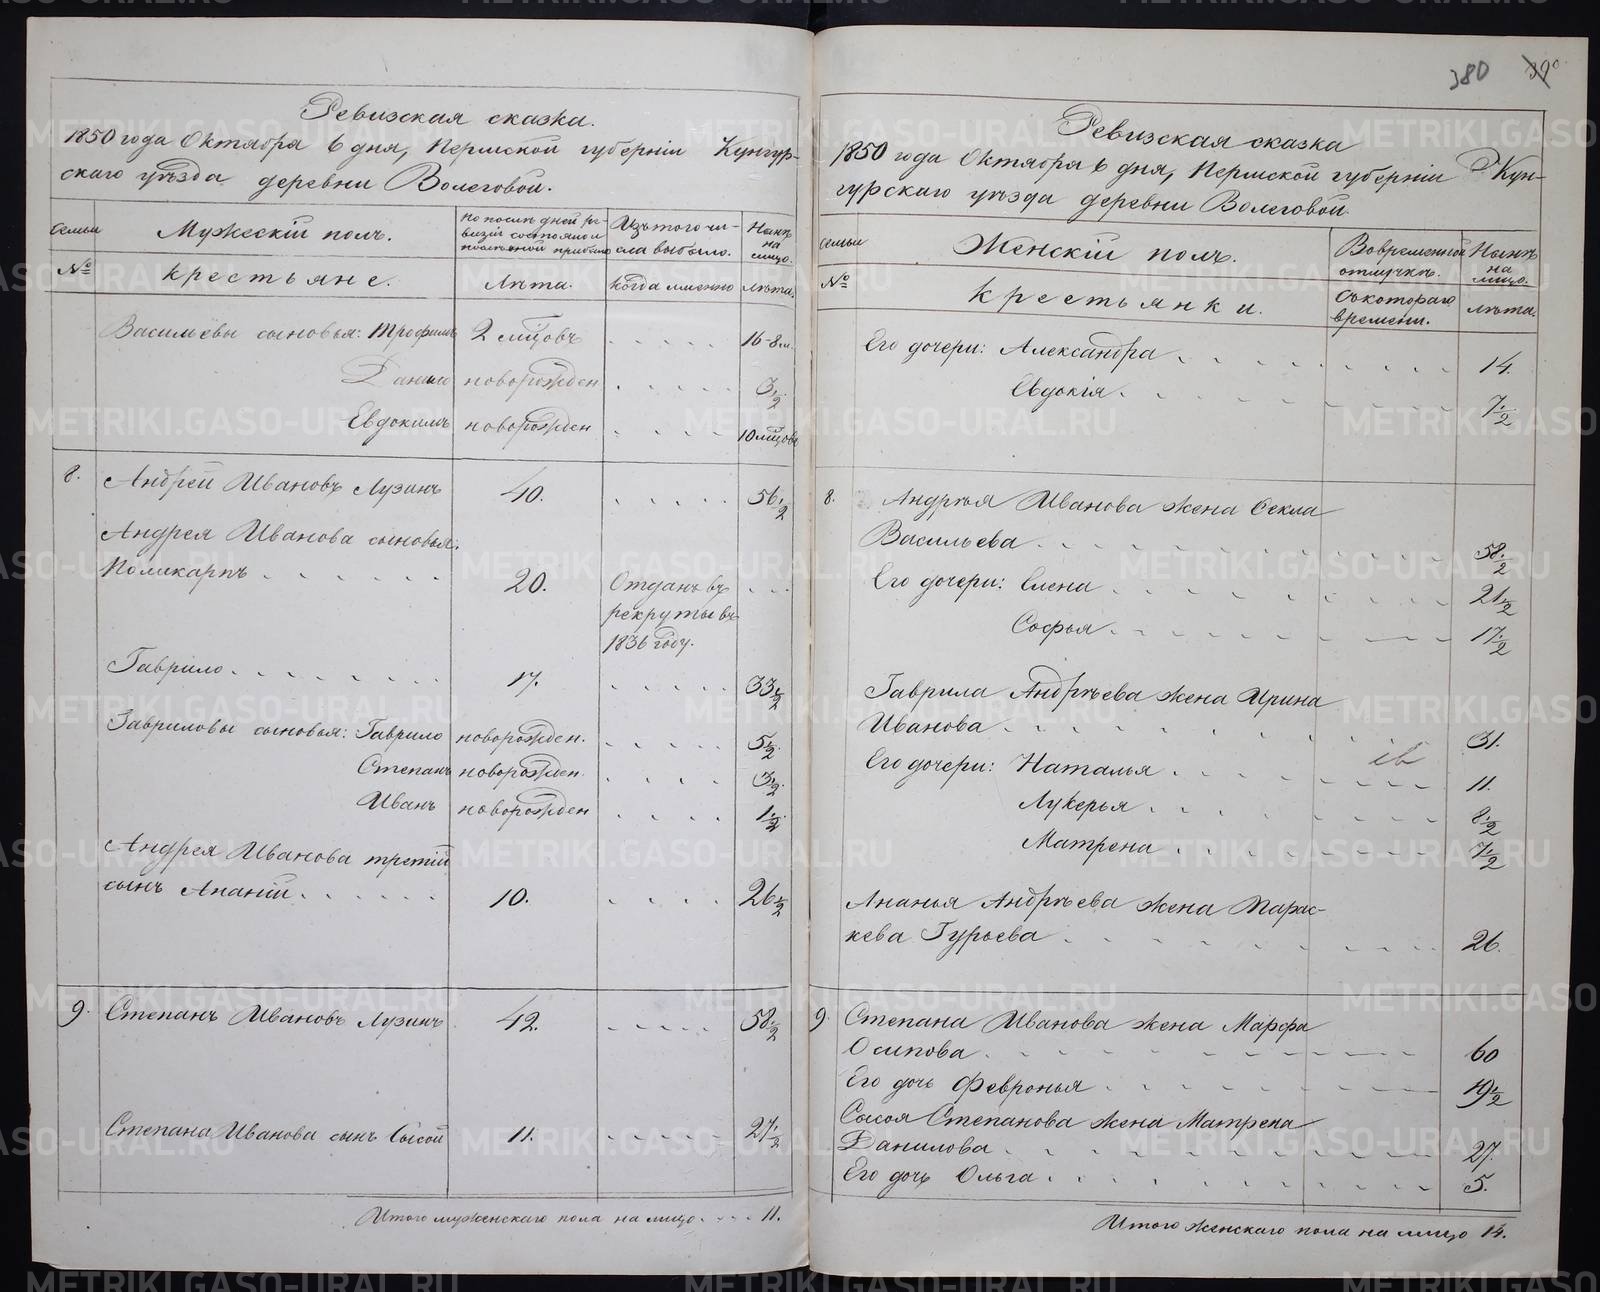 Ревизская сказка.
1850 года Октября 6 дня, Пермской губерніи Кунгур-
скаго уѣзда деревни Волеговой.
семьи
Мужескій полъ.
По послѣдней ре-
визіи состояло и
послѣ оной прибыло
Изъ того чи-
сла выбыло.
Нынѣ
на
лицо.
№
крестьяне.
Лѣта.
когда имянно
лѣта.
Васильевы сыновья: Трофимъ 2 мѣсяцовъ . . . . . 16-8 м.
Данило новорожден . . . . . 3½
Евдокимъ новорожден . . . . 10 мѣсяцовъ
8. Андрей Ивановъ Лузинъ 40. . . . . . 56½
Андрея Иванова сыновья:
Поликарпъ . . . . . . 20. Отданъ въ . . .
рекруты въ
1836 году.
Гаврило . . . . . . . . 17. . . . . . 33½
Гавриловы сыновья: Гаврило новорожден. . . . . . 5½
Степанъ новорожден. . . . . 3½
Иванъ новорожден . . . . 1½
Андрея Иванова третій
сынъ Ананій . . . . . . 10. . . . . 26½
9. Степанъ Ивановъ Лузинъ 42. . . . . . 58½
Степана Иванова сынъ Сысой 11. . . . . . 27½
Итого мужескаго пола на лицо . . . . 11.
380 390
Ревизская сказка
1850 года Октября 6 дня, Пермской губерніи Кун-
гурскаго уѣзда деревни Волеговой.
семьи
Женскій полъ.
Во временной
отлучкѣ.
Нынѣ
на
лицо.
№
крестьянки.
Съ котораго
времени.
лѣта.
Его дочери: Александра . . . . . . . . . . 14.
Евдокія . . . . . . . . . . 7½
8. Андрѣя Иванова жена Фекла
Васильева . . . . . . . . . . . 58½
Его дочери: Елена . . . . . . . . . . 21½
Софья . . . . . . . . . . 17½
Гаврила Андрѣева жена Ирина
Иванова . . . . . . . . . . 31.
Его дочери: Наталья . . . . . . . . 11.
Лукерья . . . . . . . . 8½
Матрена . . . . . . . . 7½
Ананья Андрѣева жена Парас-
кева Гурьева . . . . . . . . . 26.
9. Степана Иванова жена Марфа
Осипова . . . . . . . . . . 60
Его дочь Февронья . . . . . . . . 19½
Сысоя Степанова жена Матрена
Данилова . . . . . . . . . . 27.
Его дочь Ольга . . . . . . . . . 5.
Итого женскаго пола на лицо 14.
METRIKI.GASO-URAL.RU